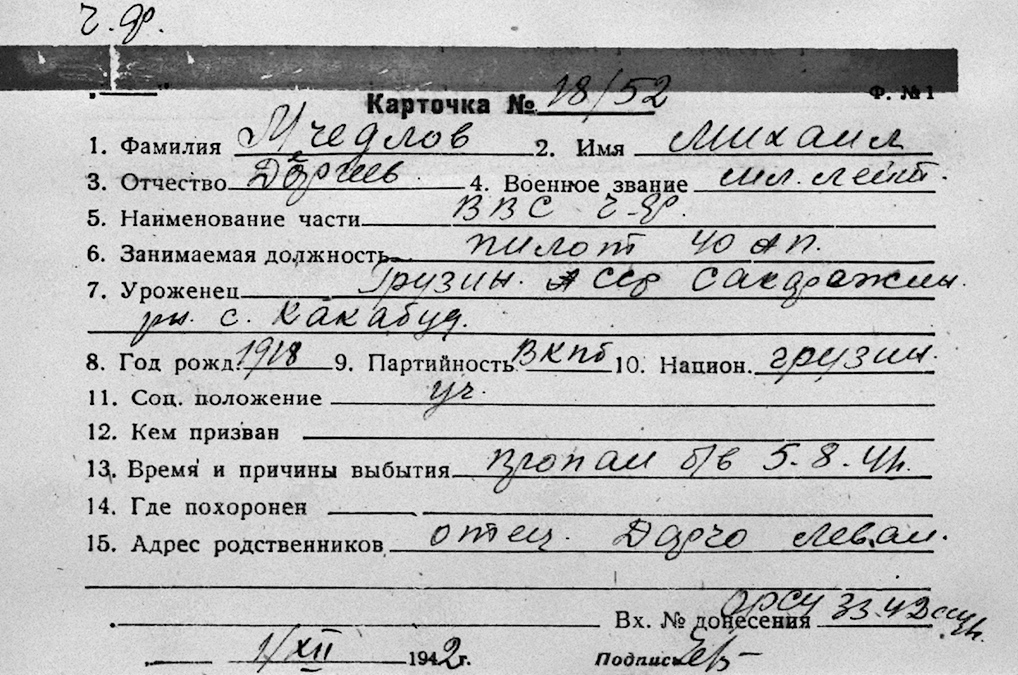 ч. ф.
Карточка № 18/52 Ф. № 1
1. Фамилия Мчедлов 2. Имя Михаил
3. Отчество 4. Военное звание мл. лейт.
5. Наименование части ВВС ч. ф.
6. Занимаемая должность пилот 40 ап.
7. Уроженец Грузин. АССР
рн. с. Какабуд.
8. Год рожд. 1918 9. Партийность ВКПб 10. Национ. грузин.
11. Соц. положение уч.
12. Кем призван
13. Время и причины выбытия пропал б/в 5.8.41г.
14. Где похоронен
15. Адрес родственников отец. Дарчо Леван.
Вх. № донесения ОРСУ
1/XII 1942г. Подпись